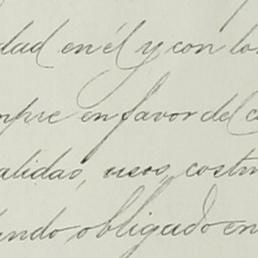 dad en él y con los
mpre en favor del c
alidad, usos, costu
ando, obligado en